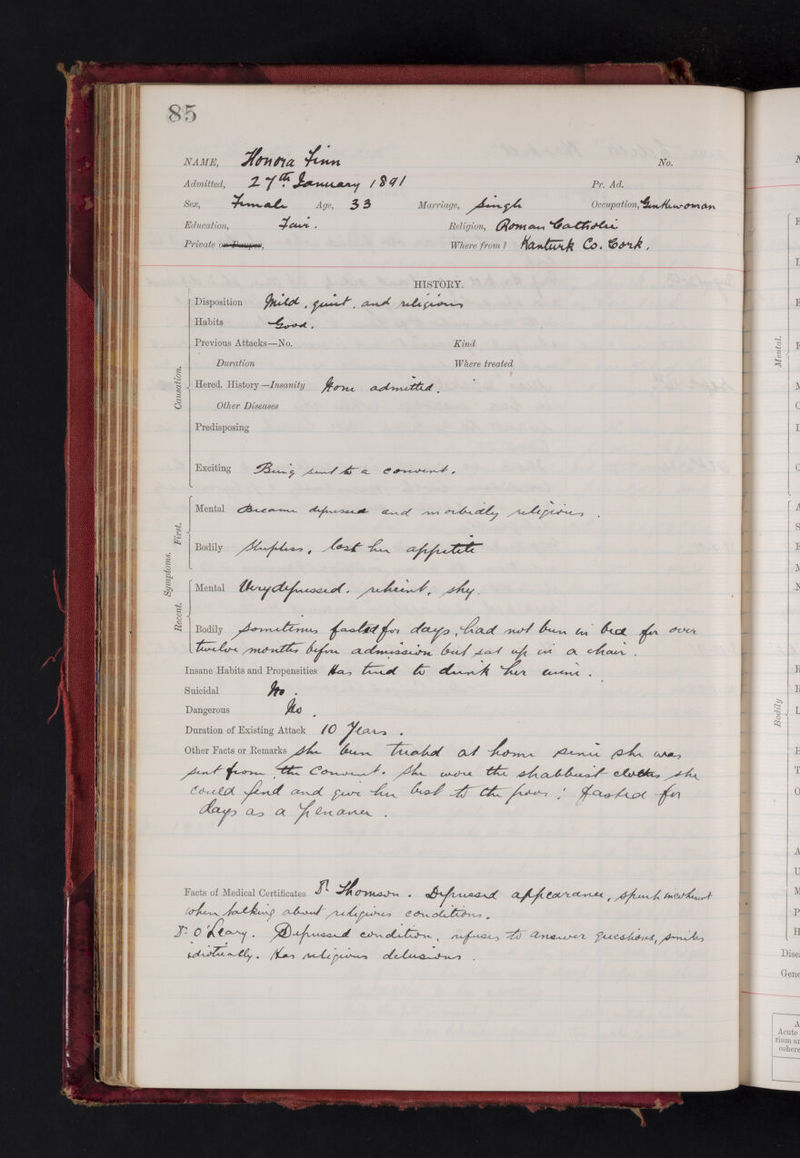 85
NAME, Honora Finn No.
Admitted, 27th January 1891 Pr. Ad.
Sex, Female Age, 33 Marriage, Single Occupation, Gentlewoman
Education, Fair. Religion, Roman Catholic
Private or Pauper, Where from? Kanturk Co. Cork.
HISTORY.
Causation.
Disposition Mild, quiet, and religious
Habits Good.
Previous Attacks—No. Kind
Duration Where treated
Hered. History—Insanity None admitted.
Other Diseases
Predisposing
Exciting Being sent to a convent.
Symptoms.
First.
Mental Became depressed and morbidly religious.
Bodily Sleepless, lost her appetite
Recent.
Mental Very depressed, reticent, shy.
Bodily Sometimes fasted for days, had not been in bed for over
twelve months before admission but sat up in a chair.
Insane Habits and Propensities Has tried to drink her urine.
Suicidal No.
Dangerous No.
Duration of Existing Attack 10 Years.
Other Facts or Remarks She been treated at home since she was
sent from the Convent. She wore the shabbiest clothes she
could find and give her best to the poor: fasted for
days as a penance.
Facts of Medical Certificates Dr. Thomson. Depressed appearance, speech incoherent
when talking about religious conditions.
Dr. O'Leary. Depressed condition, refuses to answer questions, smiles
idiotically. Has religious delusions.
Mental.
Bodily
Disea
Gene
A
Acute
rium an
cohere